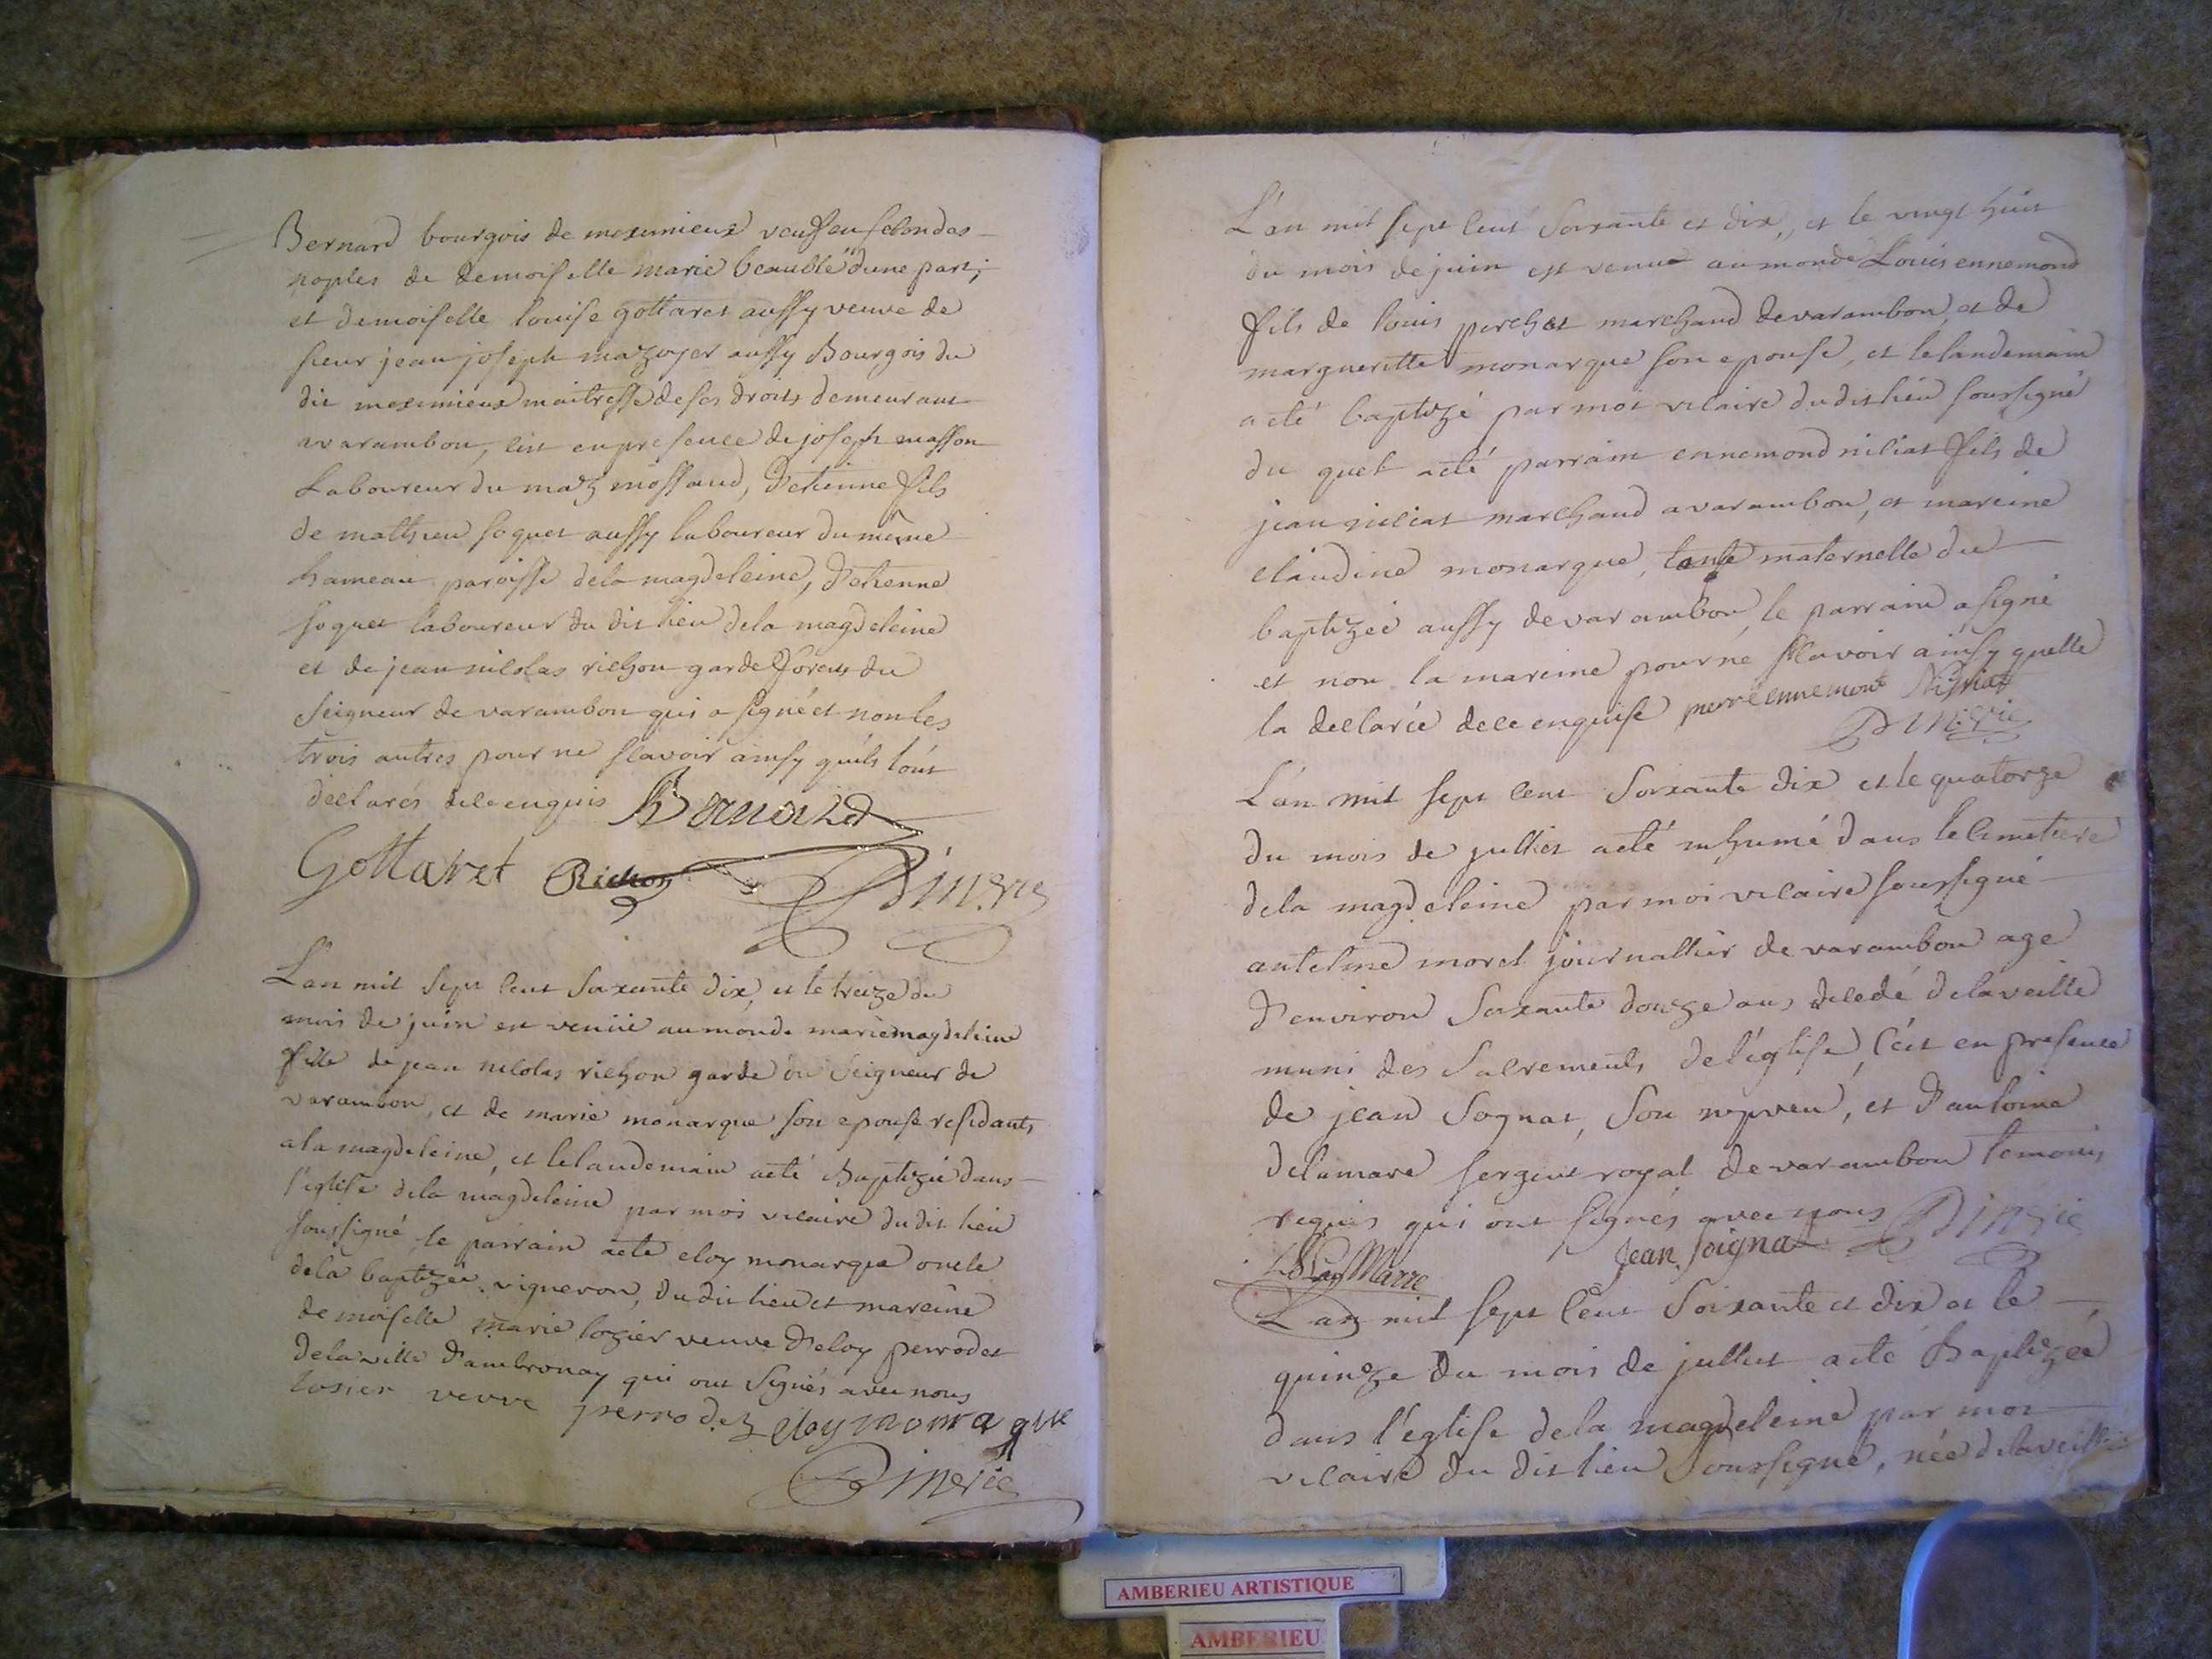 Bernard bourgois de meximieux veuf en secondes
noples de demoiselle marie beaublé d'une part;
et demoiselle louise gottaret aussy veuve de
sieur jean joseph mazoyer aussy Bourgois du
dit meximieux maitresse de ses droits demeurant
a varambon, c'est en presence de joseph masson
Laboureur du maz mossand, d'etienne fils
de mathieu soquet aussy laboureur du même
hameau paroisse dela magdeleine, d'etienne
soquet laboureur du dit lieu dela magdeleine
et de jean nicolas richon garde forets du
Seigneur de varambon qui a signé et non les
trois autres pour ne sçavoir ainsy quils l'ont
declarés de ce enquis Bernard
Gottaret Richon Dinerie
L'an mil Sept cent Soixante dix, et le treize du
mois de juin est venüe au monde marie magdeleine
fille de jean nicolas richon garde du Seigneur de
varambon, et de marie monarque son epouse residants
a la magdeleine, et le landemain aété Baptizée dans
l'eglise dela magdeleine par moi vicaire du dit lieu
soussigné, le parrain aété eloy monarque oncle
dela baptizée vigneron, du dit lieu et mareine
demoiselle marie lozier veuve d'eloy perrodet
dela ville d'ambronay qui ont Signés avec nous
losier veuve perrodez eloy monarque
Dinerie
L'an mil sept cent Soixante et dix, et le vingt huit
du mois de juin est venu au monde Louis ennemond
fils de louis perchet marchand de varambon, et de
margueritte monarque son epouse, et le landemain
aété baptizé par moi vicaire du dit lieu soussigné
du quel aété parrain ennemond niciat fils de
jean niciat marchand a varambon, et mareine
claudine monarque, tante maternelle du
baptizée aussy de varambon, le parrain a signé
et non la mareine pour ne sçavoir ainsy quelle
la declarée de ce enquise pierre ennemont Nisiat
Dinerie
L'an mil sept cent Soixante dix et le quatorze
du mois de julliet aété inhumé dans le cimetiere
dela magdeleine par moi vicaire soussigné
antelme morel journallier de varambon age
d'environ Soixante douze ans, decedé dela veille
muni des Sacrements de l'églises, c'est en presence
de jean Sognat, son nepveu, et d'antoine
delamare sergent royal de varambon temoins
requis qui ont signés avec nous Dinerie
De La Marre Jean Soignat
L'an mil sept cent Soixante et dix et le
quinze du mois de julliet aété Baptizée
dans l'église dela magdeleine par moi
vicaire du dit lieu Soussigné, née dela veille
AMBERIEU ARTISTIQUE
AMBERIEU